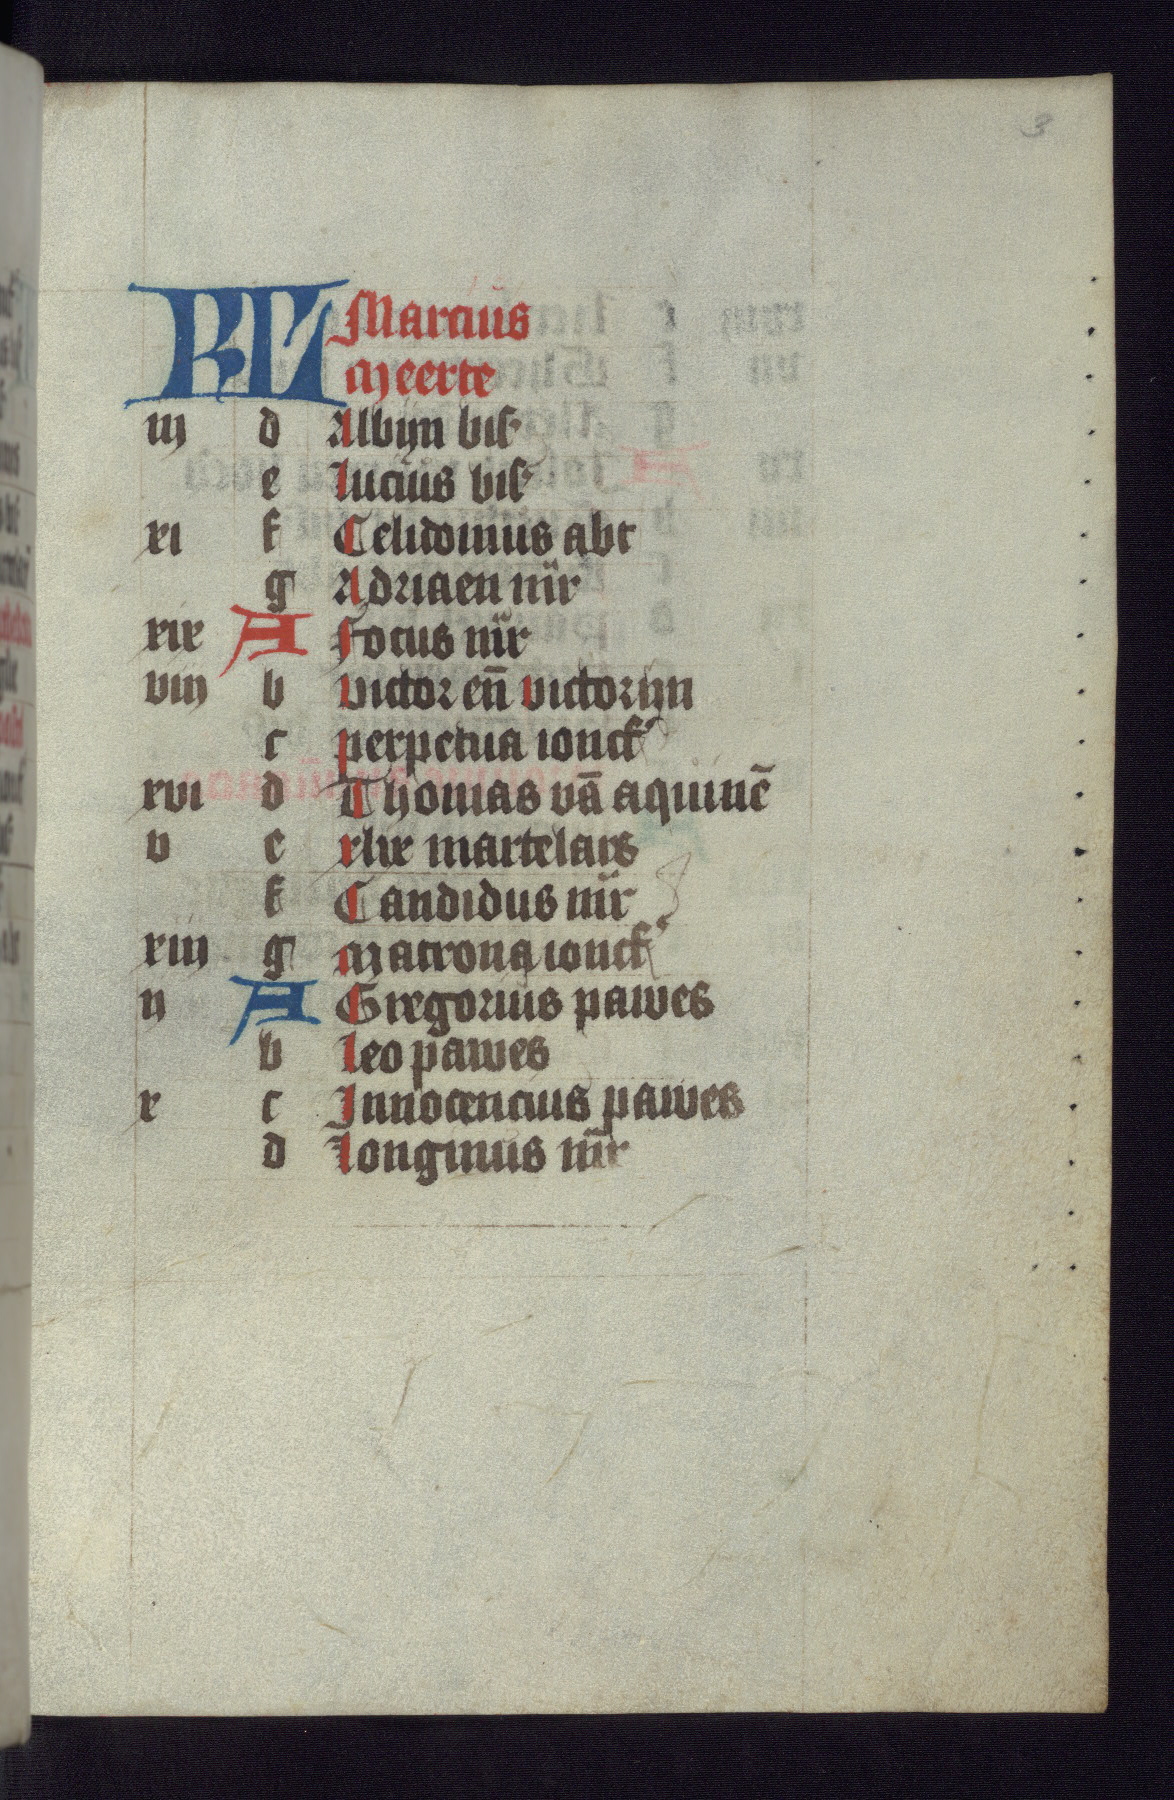 3
KL Marcius
Meerte
iij d Albijn bisſ
e Lucius bisſ
xi f Celidonius abt
g Adriaen m̄r
xix A Focus m̄r
viij b Victor en̄ victorijn
c Perpetua ioncf
xvi d Thomas vā aquinē
v e xlix martelars
f Candidus m̄r
xiij g Matrona ioncf
ij A Gregorius pawes
b Leo pawes
x c Innocencius pawes
d Longinus m̄r